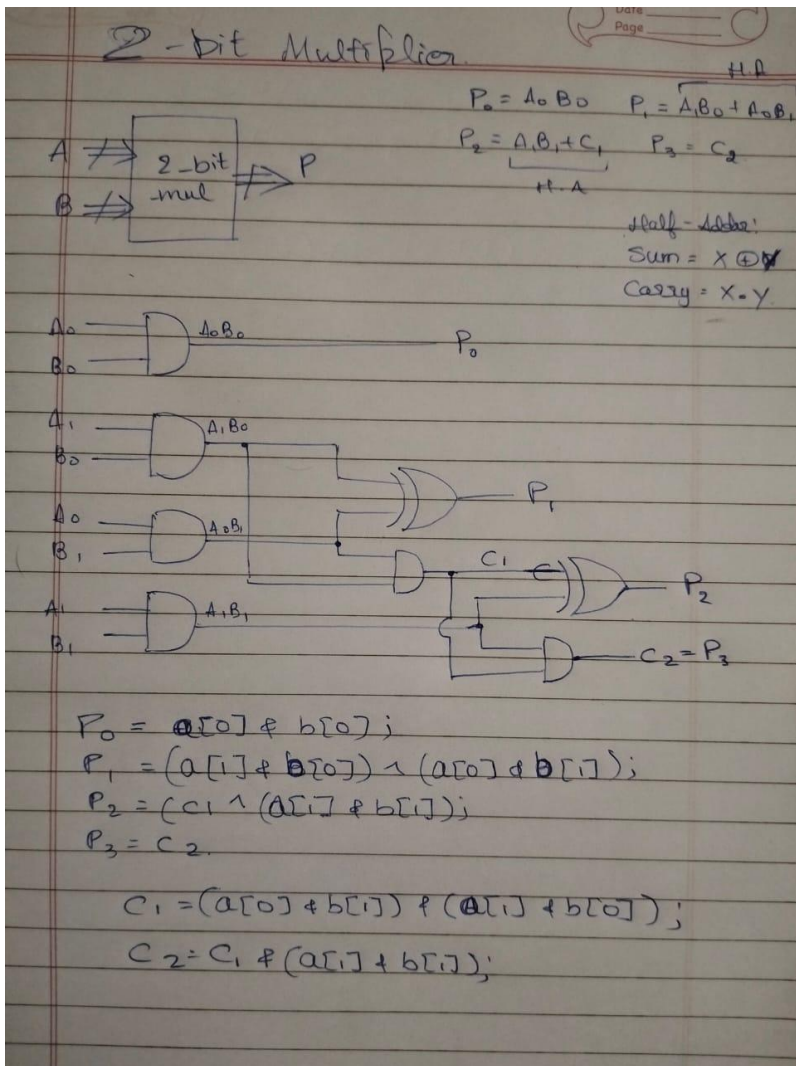 Date
Page
2-bit Multiplier
H.A
P₀ = A₀B₀ P₁ = A₁B₀ + A₀B₁
P₂ = A₁B₁ + C₁ P₃ = C₂
H.A
A 2-bit mul P
B
Half-Adder:
Sum = X ⊕ Y
Carry = X.Y
A₀ A₀B₀ P₀
B₀
A₁ A₁B₀
B₀
P₁
A₀ A₀B₁
B₁
C₁
P₂
A₁ A₁B₁
B₁
C₂ = P₃
P₀ = a[0] & b[0];
P₁ = (a[1] & b[0]) ^ (a[0] & b[1]);
P₂ = (C1 ^ (a[1] & b[1]);
P₃ = C2.
C₁ = (a[0] & b[1]) & (a[1] & b[0]);
C₂ = C₁ & (a[1] & b[1]);